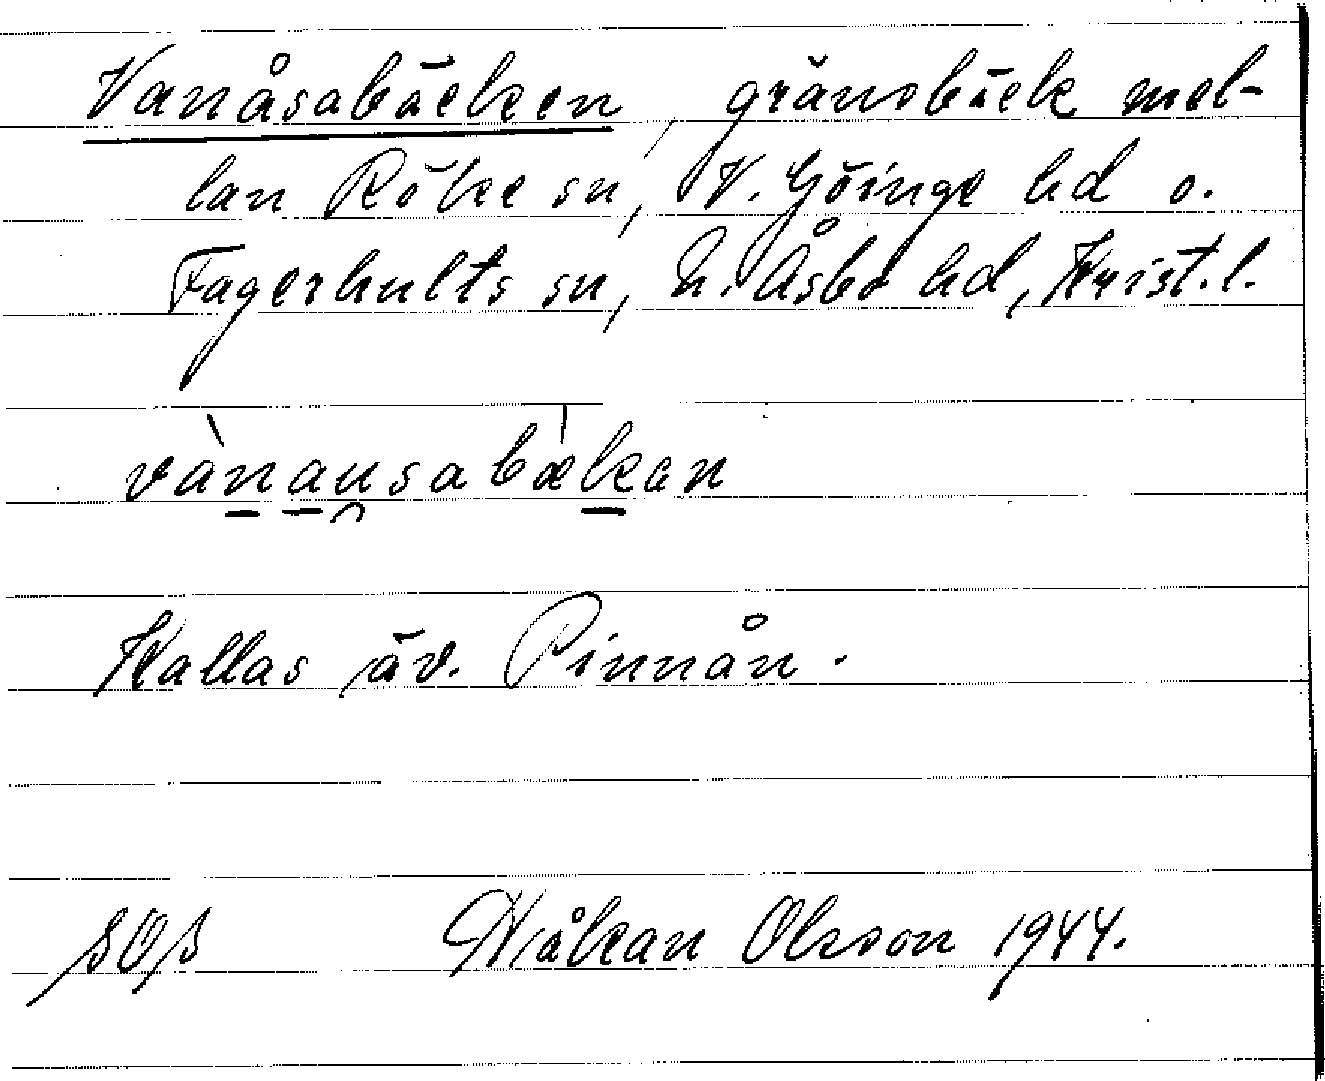 Vanåsabäcken, gränsbäck mel-
lan Röke sn, V. Göinge hd o.
Fagerhults sn, N. Åsbo hd, Krist. l.
vànausabækan
Kallas äv. Pinnån.
Håkan Olsson 1944.